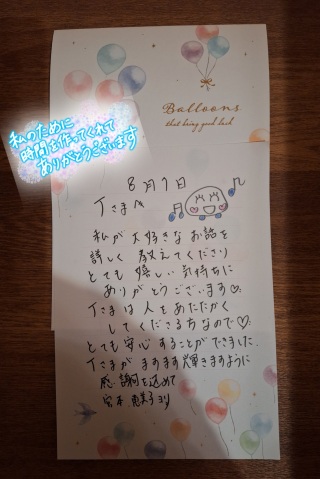 Balloons
that bring good luck
私のために
時間を作ってくれて
ありがとうございます
8月7日
Tさまへ
私が大好きなお話を
詳しく教えてくださり
とても嬉しい気持ちに
ありがとうございます♡
Tさまは人をあたたかく
してくださる方なので♡
とても安心することができました
Tさまがますます輝きますように
感謝を込めて
宮本 恵美子より